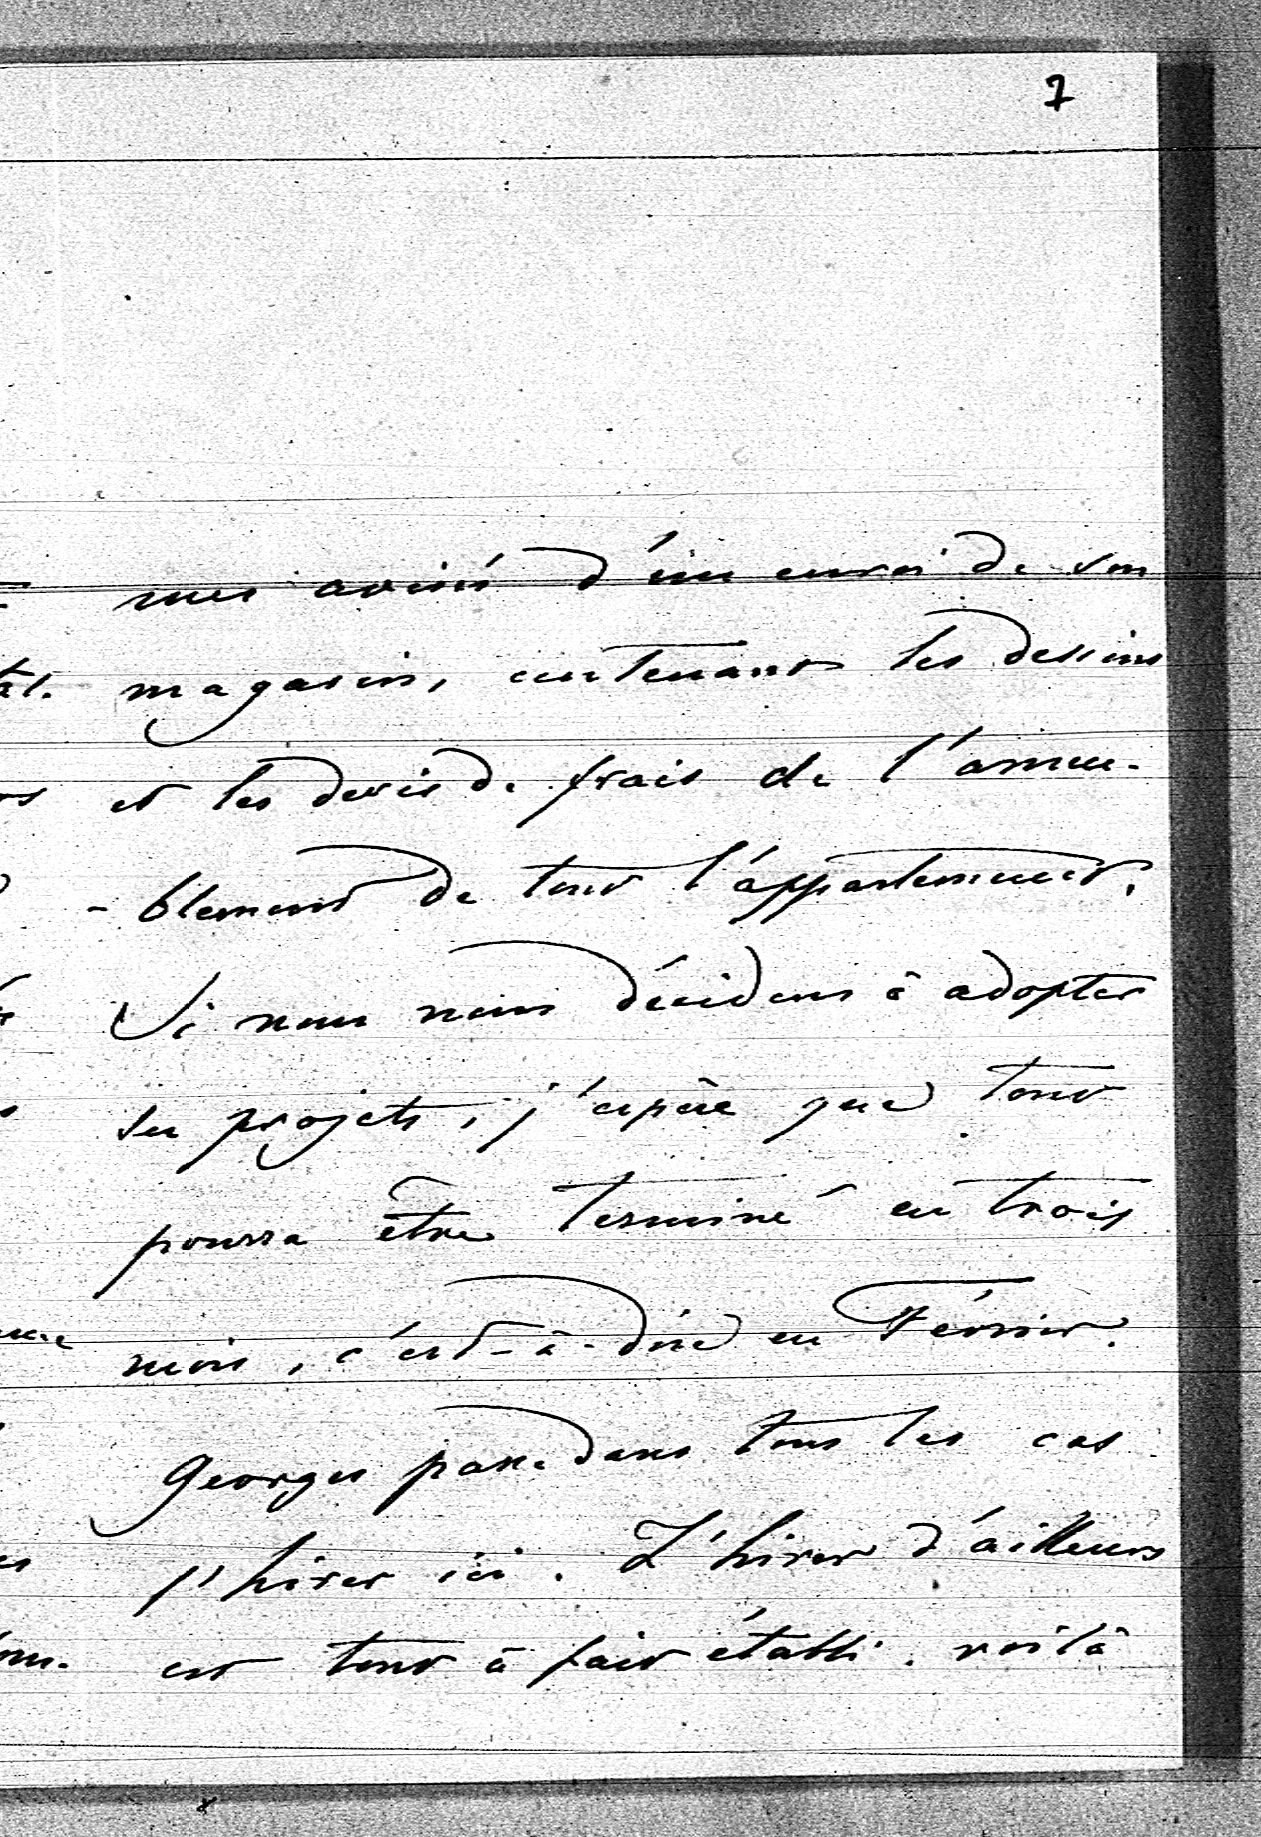 7
mes avisés d'un envoi de son
magasin, contenant les dessins
et les devis de frais de l'ameu-
-blement de tout l'appartement.
Si nous nous décidons à adopter
ses projets, j'espère que tout
pourra être terminé en trois
mois, c'est-à-dire en Février.
Georges passe dans tous les cas
l'hiver ici. L'hiver d'ailleurs
est tout à fait établi. voilà